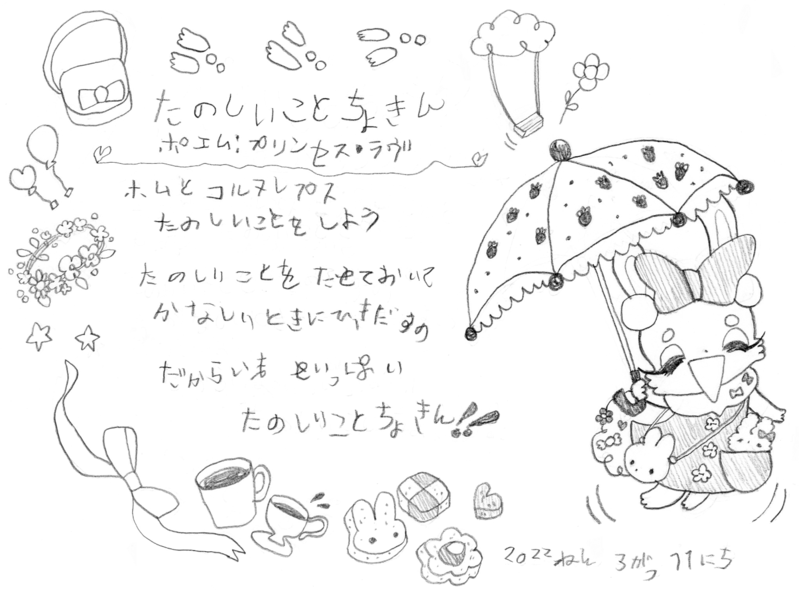 たのしいこと ちょきん
ポエム:プリンセス・ラヴ
ホムと コルヌレプス
たのしいことをしよう
たのしいことを ためておいて
かなしいときにひきだすの
だからいま せいっぱい
たのしいこと ちょきん!!
2022ねん 3がつ 11にち